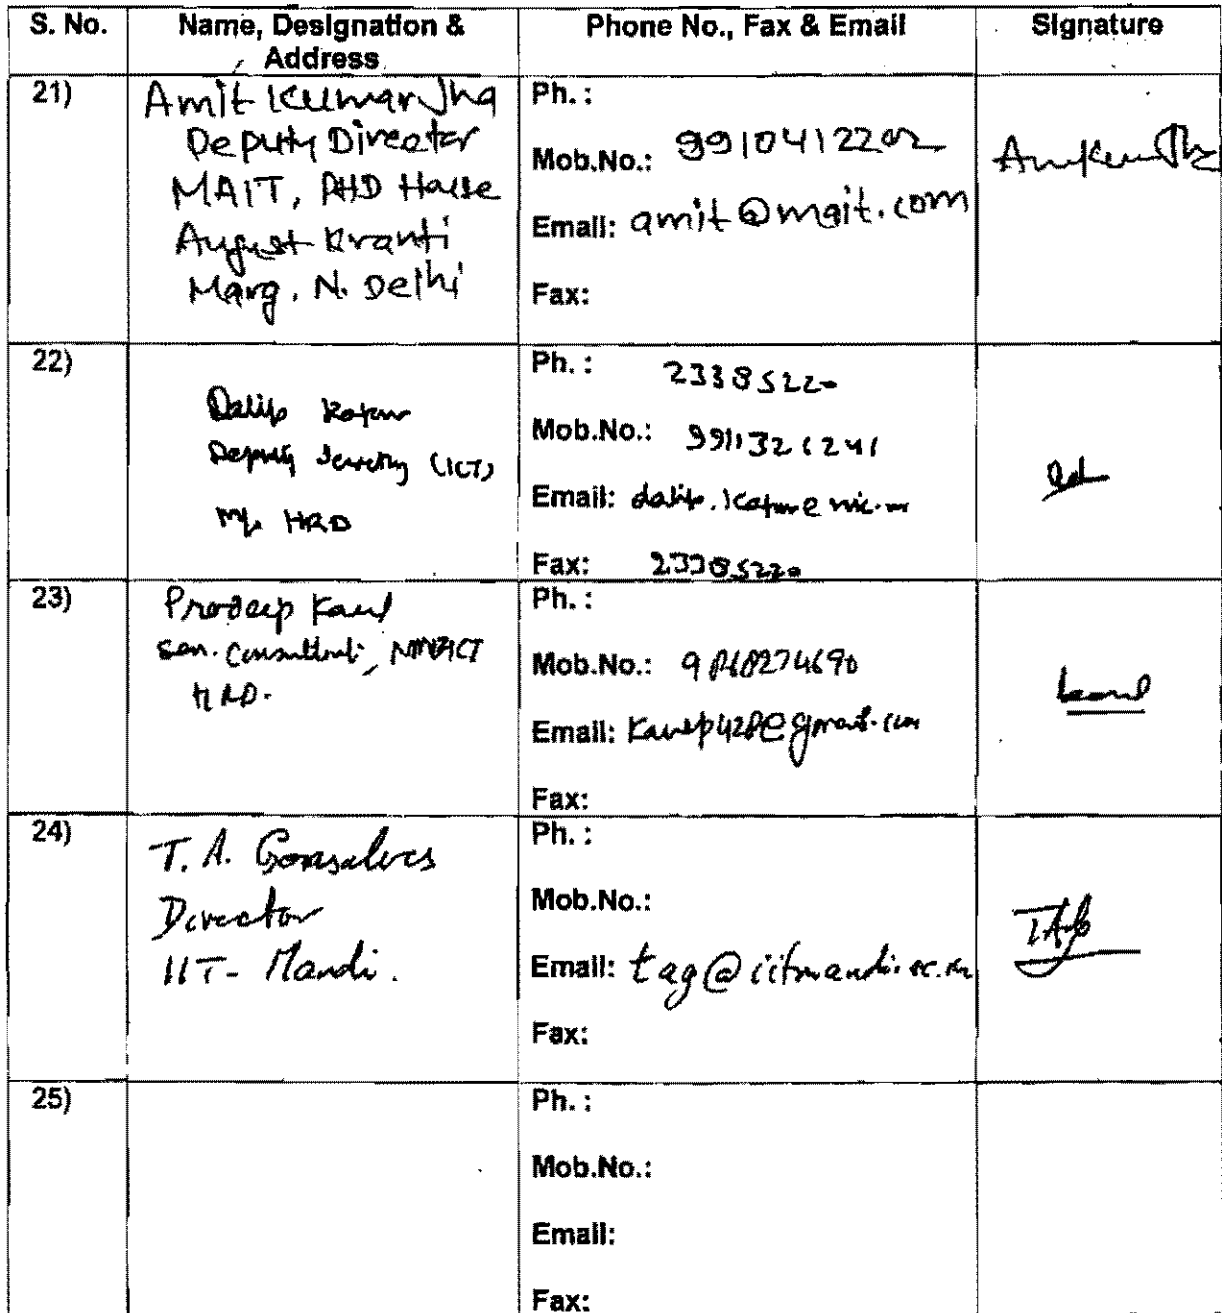 S. No.
Name, Designation &
Address
Phone No., Fax & Email
Signature
21)
Amit Kumar Jha
Deputy Director
MAIT, PHD House
August Kranti
Marg, N. Delhi
Ph. :
Mob.No.: 9910412202
Email: amit@mait.com
Fax:
22)
Dalip Kapur
Deputy Secretary (ICT)
HRD
Ph. : 23385220
Mob.No.:
Email:
Fax: 23385220
23)
Pradeep Kaul
Sen. Consultant, NMEICT
HRD.
Ph. :
Mob.No.: 9868274690
Email:
Fax:
Kaul
24)
T. A. Gonsalves
Director
IIT- Mandi.
Ph. :
Mob.No.:
Email: tag@iitmandi.ac.in
Fax:
TAG
25)
Ph. :
Mob.No.:
Email:
Fax: